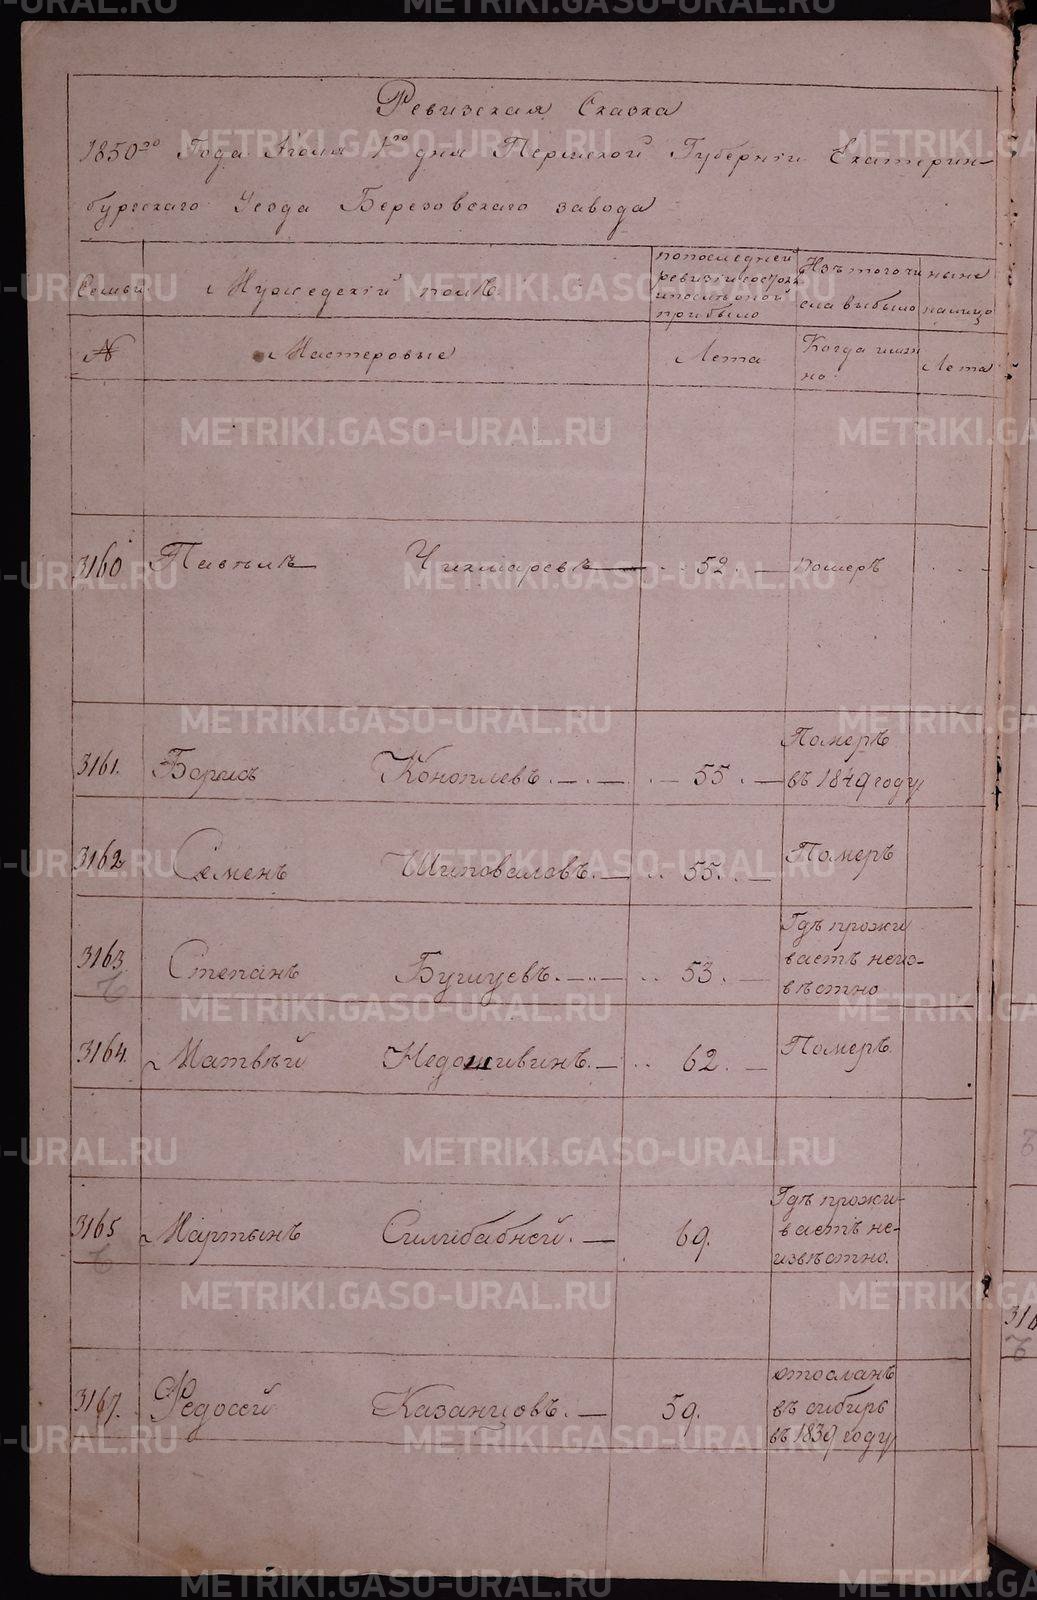 Ревизская Сказка
1850го Года Июля 1го дня Пермской Губернiи Екатерин-
бургскаго Уезда Березовскаго завода
Семьи Мужедескiй полъ. по последней ревизiи состоял и после оной прибыло Изъ того числа выбыло ныне налицо
№ Мастеровые Лета Когда имянно Лета
3160 Павелъ Чикмаревъ 52. померъ
3161. Борисъ Коноплевъ. 55. Померъ
въ 1849 году
3162 Семенъ Шиповаловъ. 55. Померъ
3163 Степанъ Бушуевъ. 53. Гдъ прожи
ваетъ неиз-
въстно
3164. Матвъй Недошивинъ. 62. Померъ
3165 Мартынъ 69. Гдъ прожи-
ваетъ не-
извъстно.
3167. Федосей Казанцовъ. 59. отосланъ
въ сибирь
въ 1839 году
METRIKI.GASO-URAL.RU